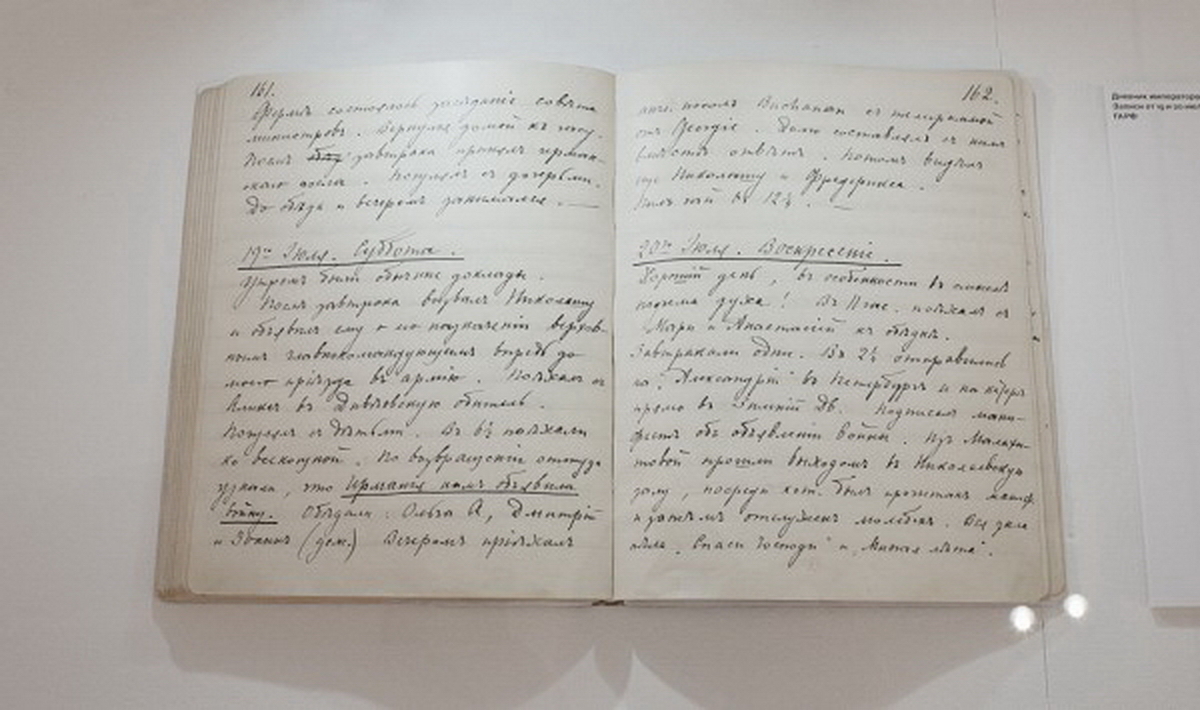 161.
Фермѣ состоялось засѣданіе совѣта
министровъ. Вернулся домой къ часу.
Послѣ завтрака принялъ герман-
скаго посла. Погулялъ съ дочерьми.
До обѣда и вечеромъ занимался. —
19го Іюля. Суббота.
Утромъ были обычные доклады.
Послѣ завтрака вызвалъ Николашу
и объявилъ ему о его назначеніи верхов-
нымъ главнокомандующимъ впредь до
моего пріѣзда въ армію. Поѣхалъ съ
Аликсъ въ Дивѣевскую обитель.
Погулялъ съ дѣтьми. Въ 6½ поѣхали
ко всенощной. По возвращеніи оттуда
узнали, что Германія намъ объявила
войну. Обѣдали: Ольга А, Дмитрій
и Іоаннъ (деж.) Вечеромъ пріѣхалъ
162.
англ. посолъ Buchanan съ телеграммой
отъ Georgie. Долго составлялъ съ нимъ
вмѣстѣ отвѣтъ. Потомъ видѣлъ
еще Николашу и Фредерикса.
Пилъ чай въ 12¼. —
20го Іюля. Воскресеніе.
Хорошій день, въ особенности въ смыслѣ
подъема духа! Въ
Мари и Анастасіей къ обѣднѣ.
Завтракали одни. Въ 2¼ отправились
на „Александріи" въ Петербургъ и на катерѣ
прямо въ Зимній Дв. Подписалъ мани-
фестъ объ объявленіи войны. Изъ Малахи-
товой прошли выходомъ въ Николаевскую
залу, посреди кот. былъ прочитанъ маниф.
и затѣмъ отслуженъ молебенъ. Вся зала
пѣла „Спаси Господи" и „Многая лѣта".
Дневник император
Записи от 19 и 20 июл
ГАРФ